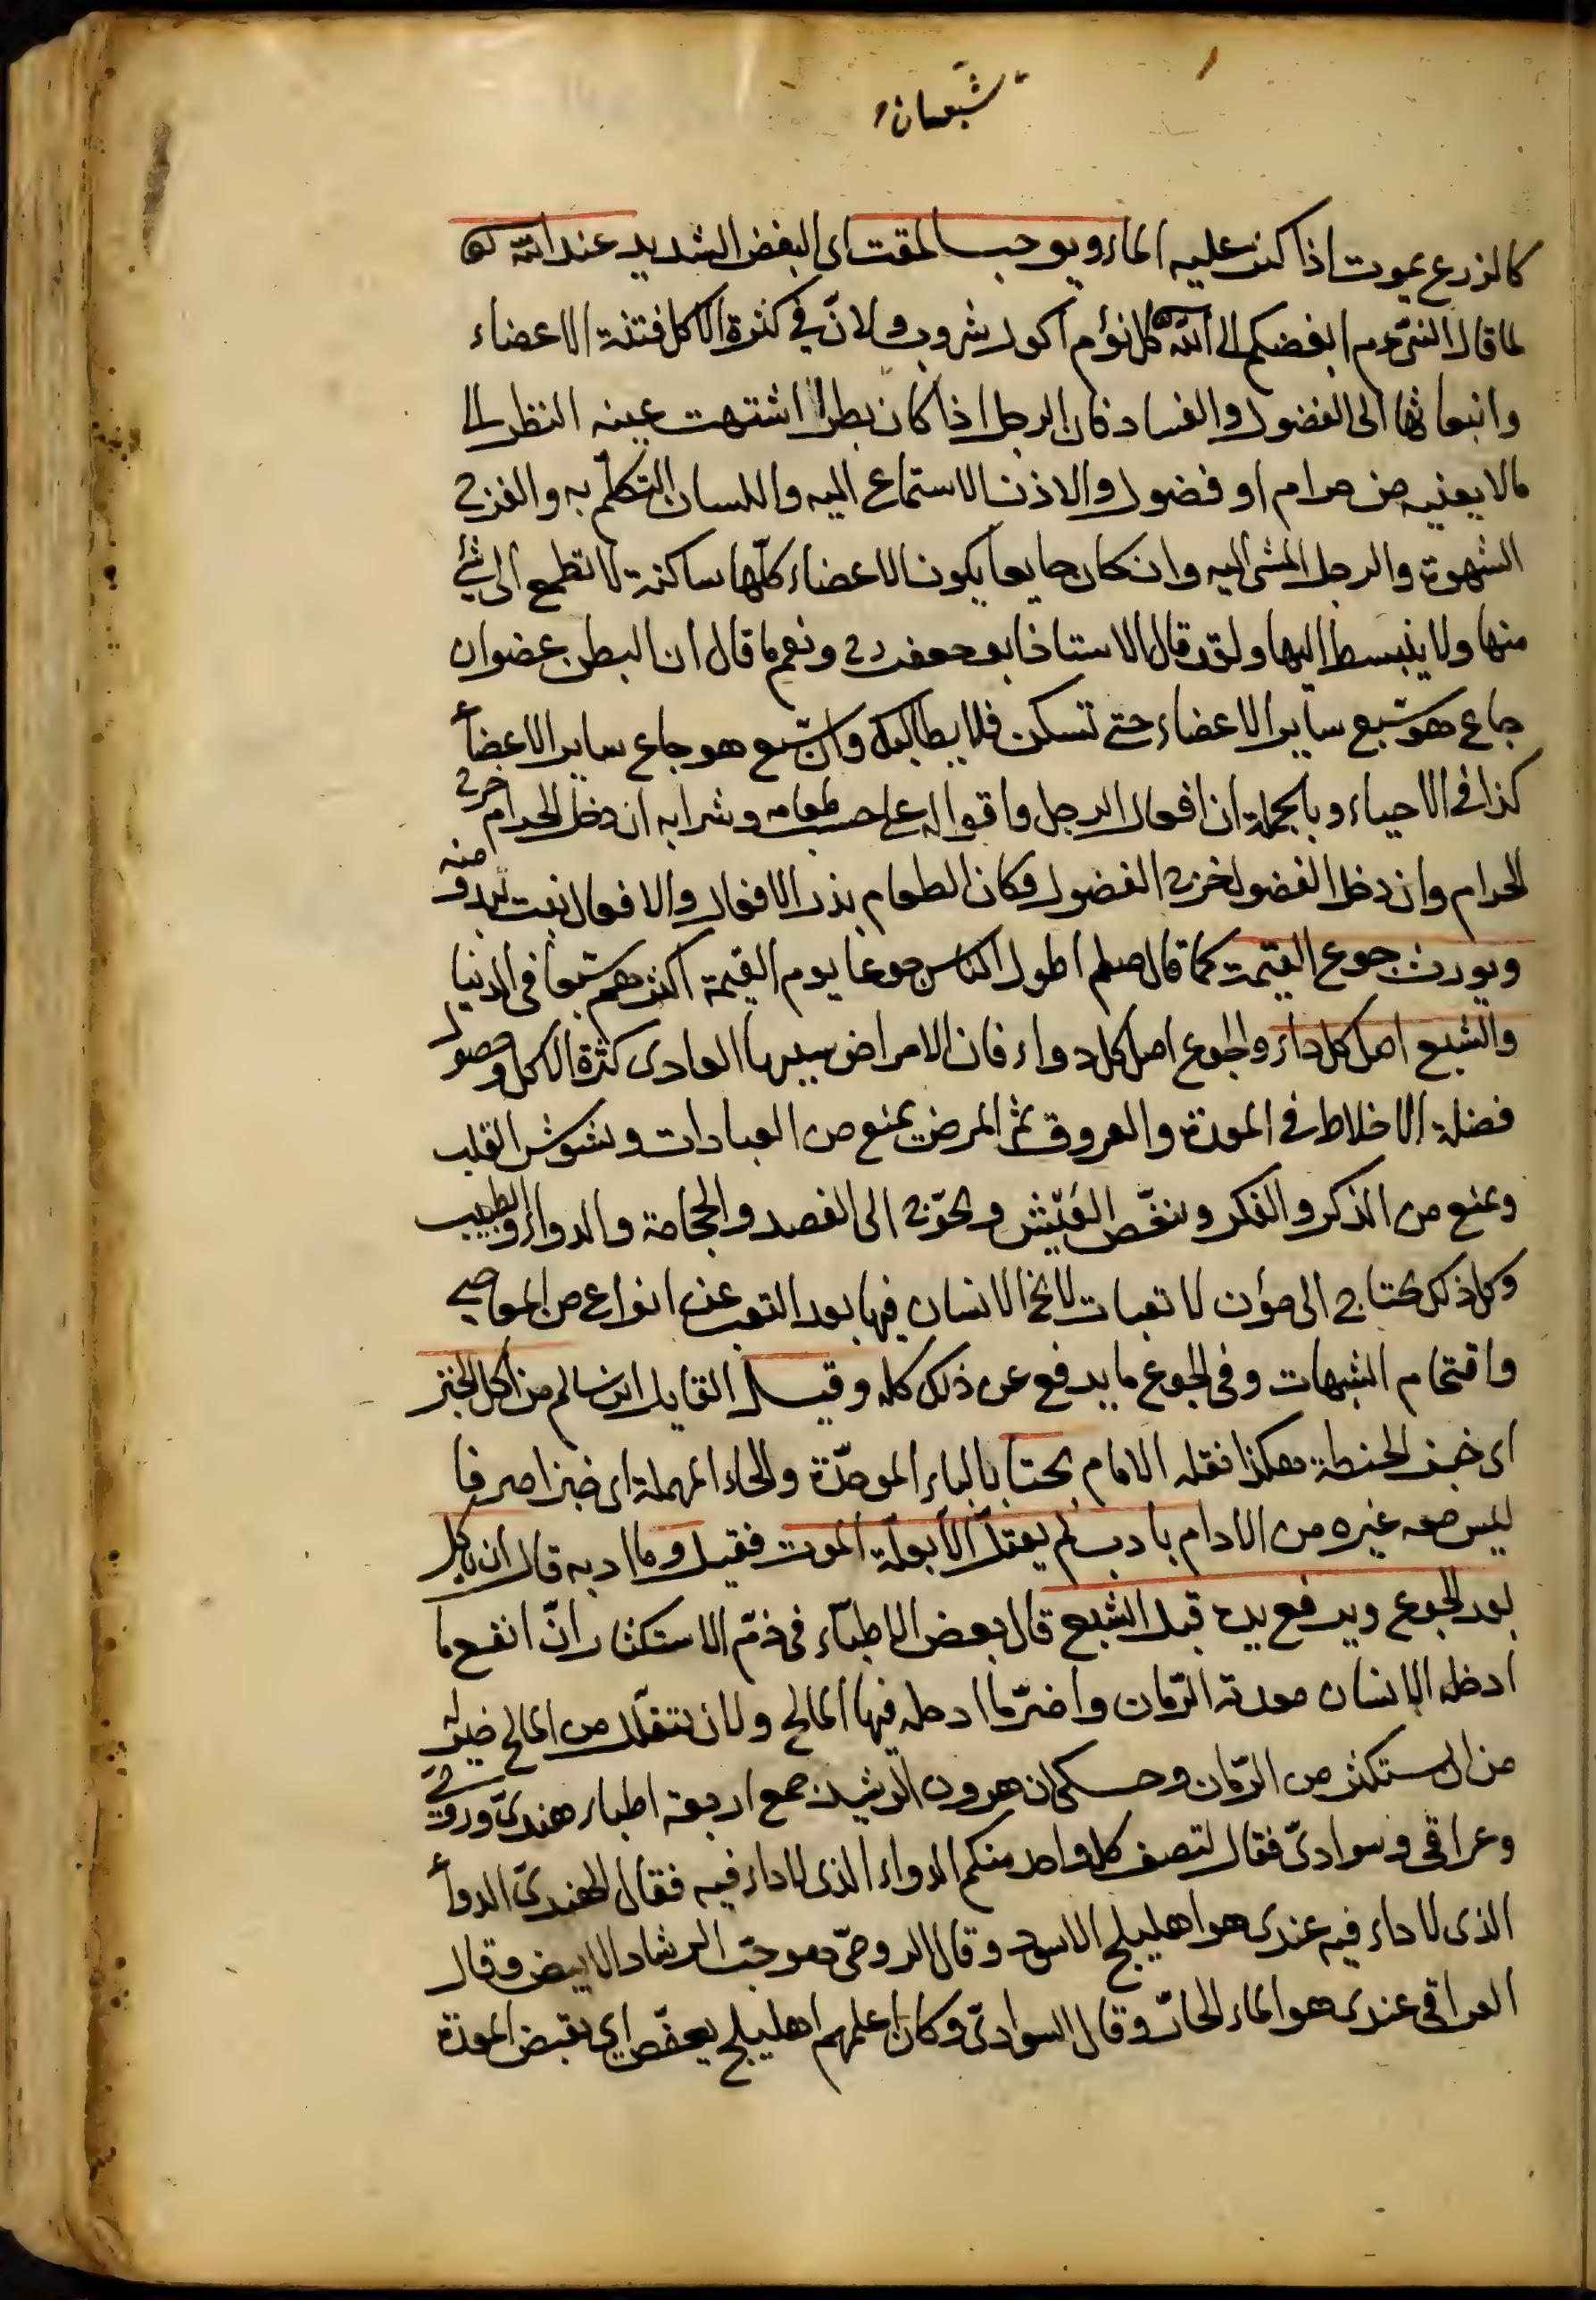 شبعان
كالزرع يموت اذا كثر عليه الماء ويوجب المقت اى البغض الشديد عند الله
لما قال النبى عم ابغضكم الى الله كل نؤم اكول شروب ولانّ فى كثرة الاكل فتنة الاعضاء
وانبعاثها الى الفضول والفساد فان الرجل اذا كان بطرا اشتهت عينه النظر الى
مالا يعنيه من حرام او فضول والاذن الاستماع اليه واللسان التكلّم به والفرج
الشهوة والرجل المشى اليه وان كان جايعا يكون الاعضاء كلّها ساكنة لا تطمع الى شئ
منها ولا ينبسط اليها ولقد قال الاستاذ ابو جعفر رح ونعم ما قال ان البطن عضو ان
جاع هو شبع ساير الاعضاء حتى تسكن فلا يطالبك وان شبع هو جاع ساير الاعضاء
كذا فى الاحياء وبالجملة ان افعال الرجل واقواله على حسب طعامه وشرابه ان دخل الحرام خرج
الحرام وان دخل الفضول خرج الفضول فكان الطعام بذر الافعال والافعال نبت يبدو منه
ويورث جوع القيمة كما قال صلعم اطول الناس جوعا يوم القيمة اكثرهم شبعا فى الدنيا
والشبع اصل كل داء والجوع اصل كل دواء فان الامراض سببها العادى كثرة الاكل وحصول
فضلة الاخلاط فى المعدة والعروق ثم المرض يمنع من العبادات ويشوش القلب
ويمنع من الذكر والفكر وينغّص العَيْش ويحوّج الى الفصد والحجامة والدواء والطبيب
وكل ذلك يحتاج الى مؤن لا تعبات لا يخ الانسان فيها بعد التعب عن انواع من المعاصى
واقتحام الشبهات وفى الجوع ما يدفع عن ذلك كله وقيل القايل ابن سالم من اكل الخبز
اى خبز الحنطة هكذا نقله الامام بحتا بالباء الموحّدة والحاء المهملة اى خبزا صرفا
ليس معه غيره من الادام بادب لم يعتلّ الا بعلّة الموت فقيل وما ادبه قال ان ياكل
بعد الجوع ويرفع يده قبل الشبع قال بعض الاطبّاء فى ذمّ الاستكثار انّ انفع ما
ادخله الانسان معدته الرّمان واضرّ ما ادخله فيها المالح ولان يتقلّل من المالح خير له
من ان يستكثر من الرّمان وحكى ان هرون الرشيد جمع اربعة اطباء هندىّ ورومىّ
وعراقى وسوادىّ فقال لتصف كل واحد منكم الدواء الذى لا داء فيه فقال الهندىّ الدواء
الذى لا داء فيه عندى هو اهليلج الاسود وقال الرومىّ هو حبّ الرشاد الابيض وقال
العراقى عندى هو الماء الحارّ وقال السوادىّ وكان اعلمهم اهليلج يعفّص اى يقبض المعدة